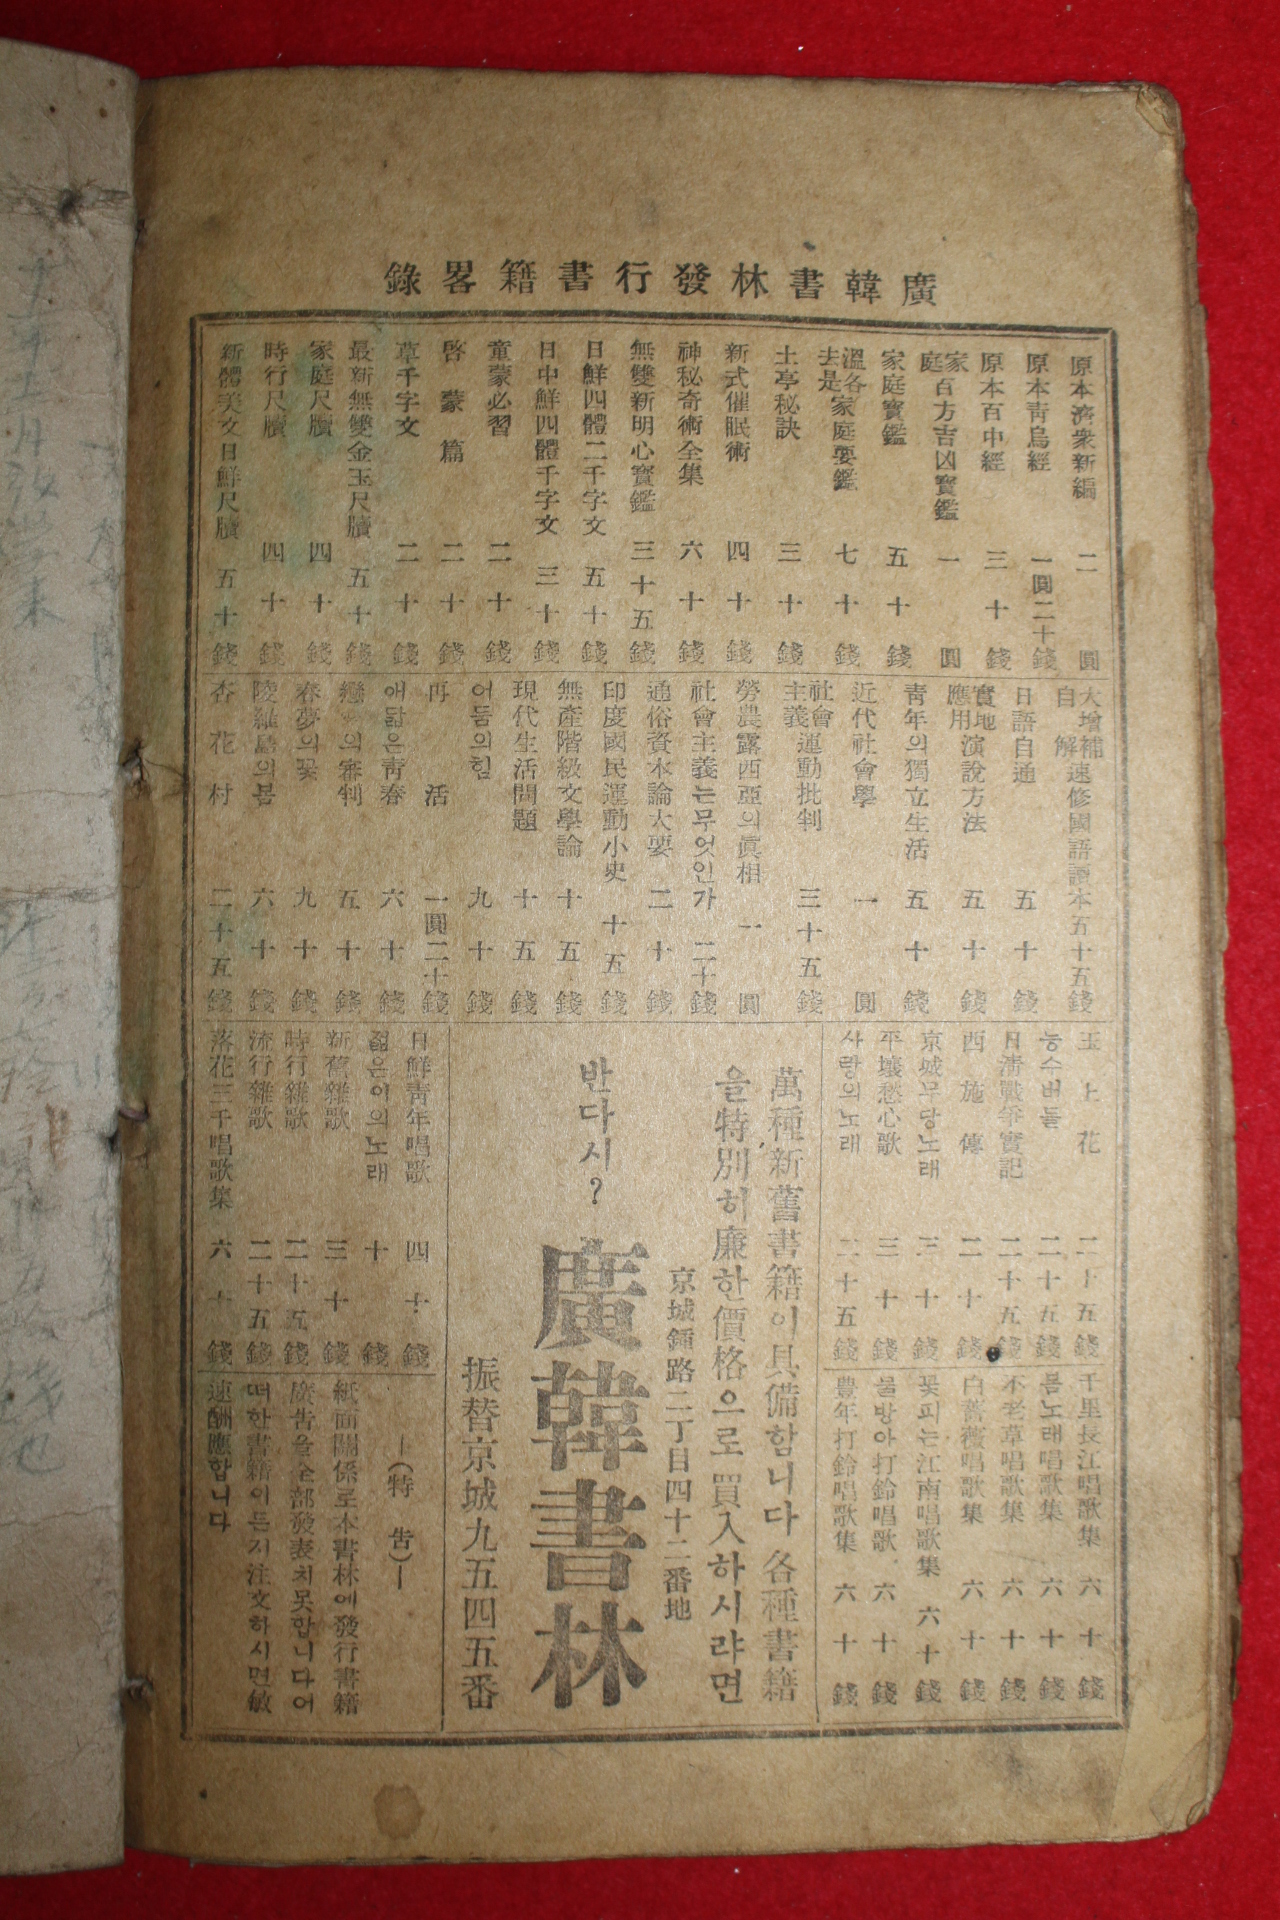 廣韓書林發行書籍畧錄
原本濟衆新編 二圓
原本靑烏經 一圓二十錢
原本百中經 三十錢
家庭百方吉凶寶鑑 一圓
家庭寶鑑 五十錢
溫各去是家庭要鑑 七十錢
土亭秘訣 三十錢
新式催眠術 四十錢
神秘奇術全集 六十錢
無雙新明心寶鑑 三十五錢
日鮮四體二千字文 五十錢
日中鮮四體千字文 三十錢
童蒙必習 二十錢
啓蒙篇 二十錢
草千字文 二十錢
最新無雙金玉尺牘 五十錢
家庭尺牘 四十錢
時行尺牘 四十錢
新體美文日鮮尺牘 五十錢
大增補自解速修國語讀本 五十五錢
日語自通 五十錢
實地應用演說方法 五十錢
靑年의獨立生活 五十錢
近代社會學 一圓
社會主義運動批判 三十五錢
勞農露西亞의眞相 一圓
社會主義는무엇인가 二十錢
通俗資本論大要 二十錢
印度國民運動小史 十五錢
無產階級文學論 十五錢
現代生活問題 十五錢
어둠의힘 九十錢
再活 一圓二十錢
애닯은靑春 六十錢
戀의審判 五十錢
春夢의꽃 九十錢
陵羅島의봄 六十錢
杏花村 二十五錢
玉上花 二十五錢
능수버들 二十五錢
日淸戰爭實記 二十五錢
西施傳 二十錢
京城무당노래 三十錢
平壤愁心歌 三十錢
사랑의노래 二十五錢
千里長江唱歌集 六十錢
봄노래唱歌集 六十錢
不老草唱歌集 六十錢
白薔薇唱歌集 六十錢
꽃피는江南唱歌集 六十錢
물방아打鈴唱歌 六十錢
豊年打鈴唱歌集 六十錢
萬種新舊書籍이具備함니다 各種書籍
을特別히廉한價格으로買入하시랴면
京城鍾路二丁目四十二番地
반다시? 廣韓書林
振替京城九五四五番
日鮮靑年唱歌 四十錢
젊은이의노래 十錢
新舊雜歌 三十錢
時行雜歌 二十五錢
流行雜歌 二十五錢
落花三千唱歌集 六十錢
—(特告)—
紙面關係로本書林에發行書籍
廣告을全部發表치못합니다어
떠한書籍이든지注文하시면敏
速酬應합니다